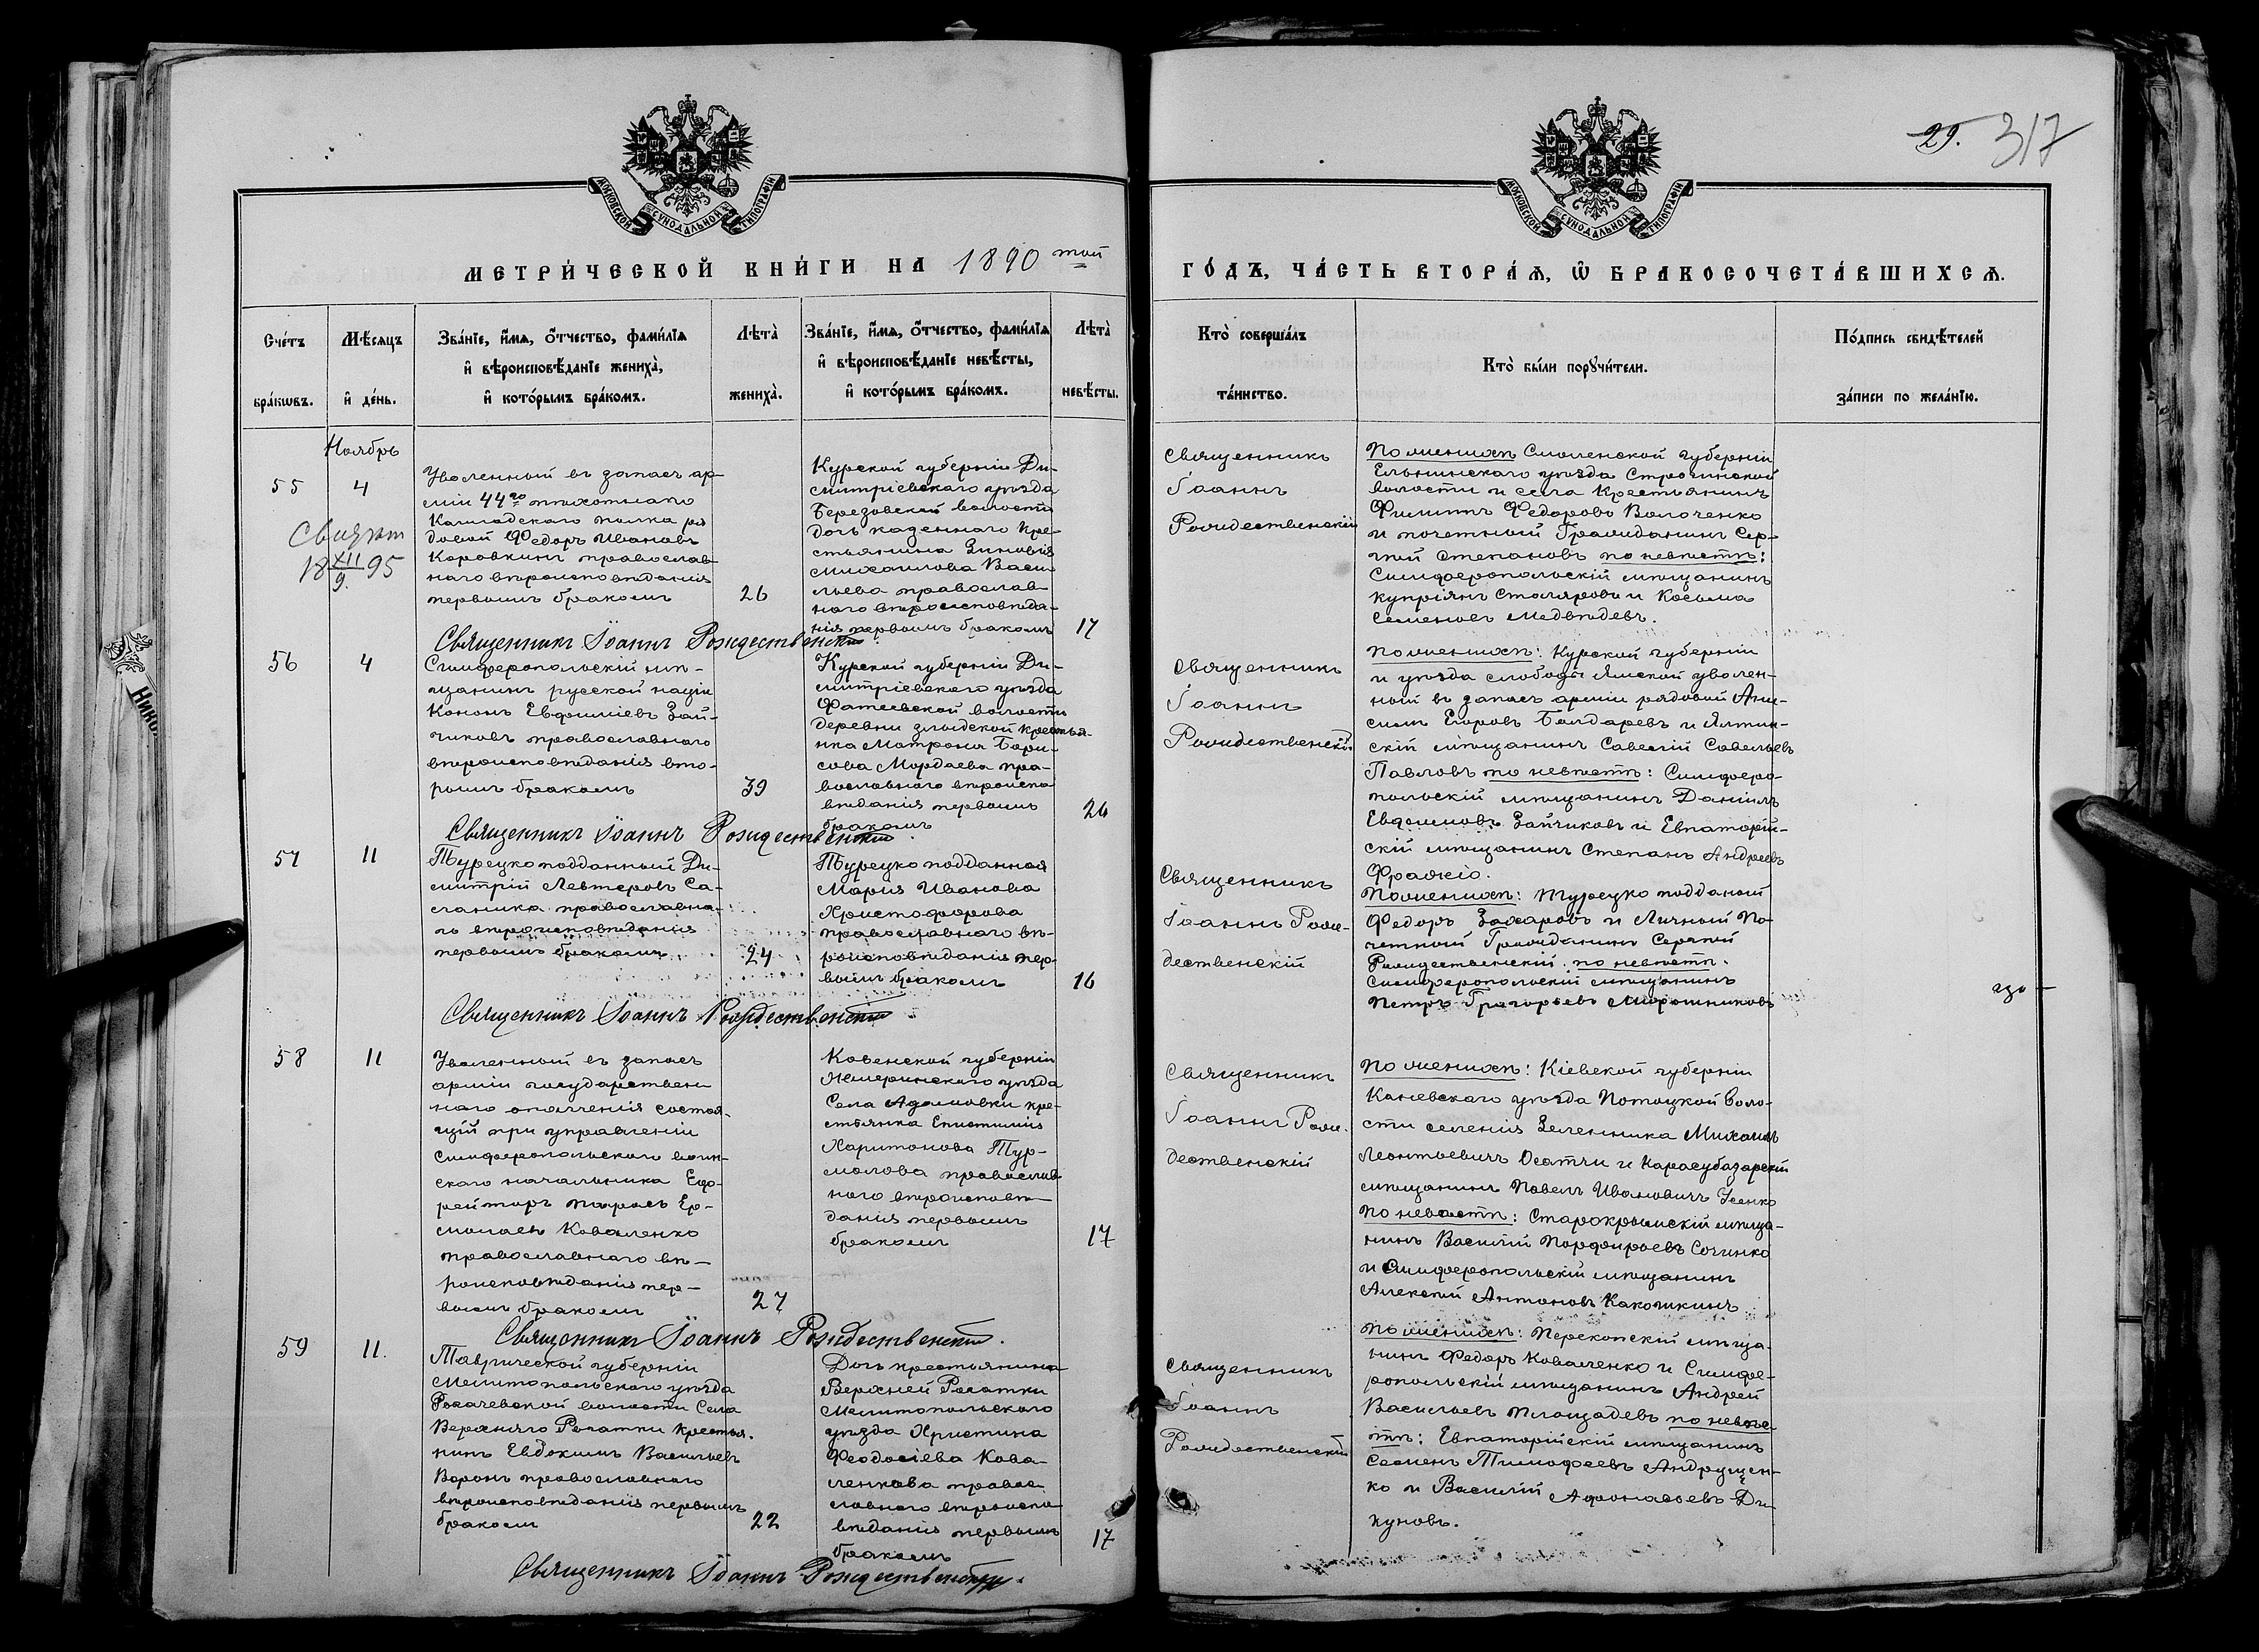 29. 317
МОСКОВСКОЙ СУНОДАЛЬНОЙ ТИПОГРАФІИ
МОСКОВСКОЙ СУНОДАЛЬНОЙ ТИПОГРАФІИ
МЕТРИ́ЧЕСКОЙ КНИ́ГИ НА 1890 той
ГО́ДЪ, ЧА́СТЬ ВТОРА́Ѧ, Ѿ БРАКОСОЧЕТА́ВШИХСѦ.
Сче́тъ бра́кѡвъ.
Мѣ́сяцъ и де́нь.
Зва́нїе, и́мѧ, о́тчество, фами́лїѧ
и вѣроисповѣ́данїе жениха̀,
и кото́рымъ бра́комъ.
Лѣта̀ жениха̀.
Зва́нїе, и́мѧ, о́тчество, фами́лїѧ
и вѣроисповѣ́данїе невѣ́сты,
и кото́рымъ бра́комъ.
Лѣта̀ невѣ́сты.
Кто̀ соверша́лъ
та́инство.
Кто̀ бы́ли порꙋчи́тели.
По́дпись свидѣ́телей
за́писи по жела́нїю.
Ноябрь
55
4
18 XII/9. 95
Уволенный въ запасъ ар-
міи 44го пехотнаго
полка ря
довой Федоръ Ивановъ
Коровкинъ православ
наго вѣроисповѣданія
первымъ бракомъ
26
Курской губерніи Ди-
митріевскаго уѣзда
Березовской волости
дочь казеннаго кре-
стьянина Зиновія
Михаилова Васи
льева православ
наго вѣроисповѣда-
нія первымъ бракомъ
17
Священникъ Іоаннъ Рождественскій
Священникъ
Іоаннъ
Рождественскій
По женихѣ Смоленской губерніи
Ельнинскаго уѣзда
волости и села Крестьянинъ
Филиппъ Федоровъ Волоченко
и почетный Гражданинъ Сер-
гѣй Степановъ по невѣстѣ:
Симферопольскій мѣщанинъ
Купріянъ Столяровъ и Косьма
Семеновъ Медвѣдевъ.
56
4
Симферопольскій мѣ-
щанинъ русской націи
Кононъ Евфиміевъ Зай-
чиковъ православнаго
вѣроисповѣданія вто-
рымъ бракомъ
39
Курской губерніи Ди-
митріевскаго уѣзда
Фатеевской волости
деревни крестья-
нка Матрона Бори-
сова Мордаева пра-
вославнаго вѣроиспо
вѣданія первымъ
бракомъ
24
Священникъ Іоаннъ Рождественскій
Священникъ
Іоаннъ
Рождественскій
По женихѣ: Курской губерніи
и уѣзда слободы Ямской уволен-
ный въ запасъ арміи рядовой Ани-
симъ Егоровъ Болдаревъ и Ялтин-
скій мѣщанинъ Савелій Савельевъ
Павловъ по невѣстѣ: Симферо-
польскій мѣщанинъ Даніилъ
Евфимовъ Зайчиковъ и Евпаторій-
скій мѣщанинъ Степанъ Андреевъ
57
11
Турецкоподданный Ди-
митрій Левтеровъ Са-
православна-
го вѣроисповѣданія
первымъ бракомъ
24
Турецкоподданная
Марія Иванова
Христофорова
православнаго вѣ-
роисповѣданія пер-
вымъ бракомъ
16
Священникъ Іоаннъ Рождественскій
Священникъ
Іоаннъ Рож-
дественскій
По женихѣ: Турецко подданый
Федоръ Захаровъ и Личный По-
четный Гражданинъ Сергѣй
Рождественскій. по невѣстѣ.
Симферопольскій мѣщанинъ
Петръ Григорьевъ Мирошниковъ
58
11
Уволенный въ запасъ
арміи государствен
наго ополченія состоя-
щій при управленіи
Симферопольскаго воин-
скаго начальника Еф-
рейторъ Тарасъ Ер-
молаевъ Коваленко
православнаго вѣ-
роисповѣданія пер-
вымъ бракомъ
27
Ковенской губерніи
уѣзда
Села Адамовки кре-
стьянка Епистимія
Харитонова Тур-
молова православ
наго вѣроисповѣ-
данія первымъ
бракомъ
17
Священникъ Іоаннъ Рождественскій.
Священникъ
Іоаннъ Рож-
дественскій
По женихѣ: Кіевской губерніи
Каневскаго уѣзда Потоцкой воло-
сти селенія Зеленника Михаилъ
Леонтьевичъ и Карасубазарскій
мѣщанинъ Павелъ Ивановичъ Усенко
По невѣстѣ: Старокрымскій мѣща-
нинъ Василій Порфирьевъ Сочинко
и Симферопольскій мѣщанинъ
Алексѣй Антоновъ
59
11.
Таврической губерніи
Мелитопольскаго уѣзда
Рогачевской волости Села
Верхняго Рогачика крестья-
нинъ Евдокимъ Васильевъ
Воронъ православнаго
вѣроисповѣданія первымъ
бракомъ
22
Дочь крестьянина
Верхней Рогатки
Мелитопольскаго
уѣзда Христина
Феодосіева Кова-
ленкова право
славнаго вѣроиспо
вѣданія первымъ
бракомъ
17
Священникъ Іоаннъ Рождественскій.
Священникъ
Іоаннъ
Рождественскій
По женихѣ: Перекопскій мѣща-
нинъ Федоръ Коваленко и Симфе-
ропольскій мѣщанинъ Андрей
Васильевъ Площадевъ по невѣс-
тѣ: Евпаторійскій мѣщанинъ
Семенъ Тимофеевъ Андрущен-
ко и Василій Афонасьевъ Ди-
куновъ.